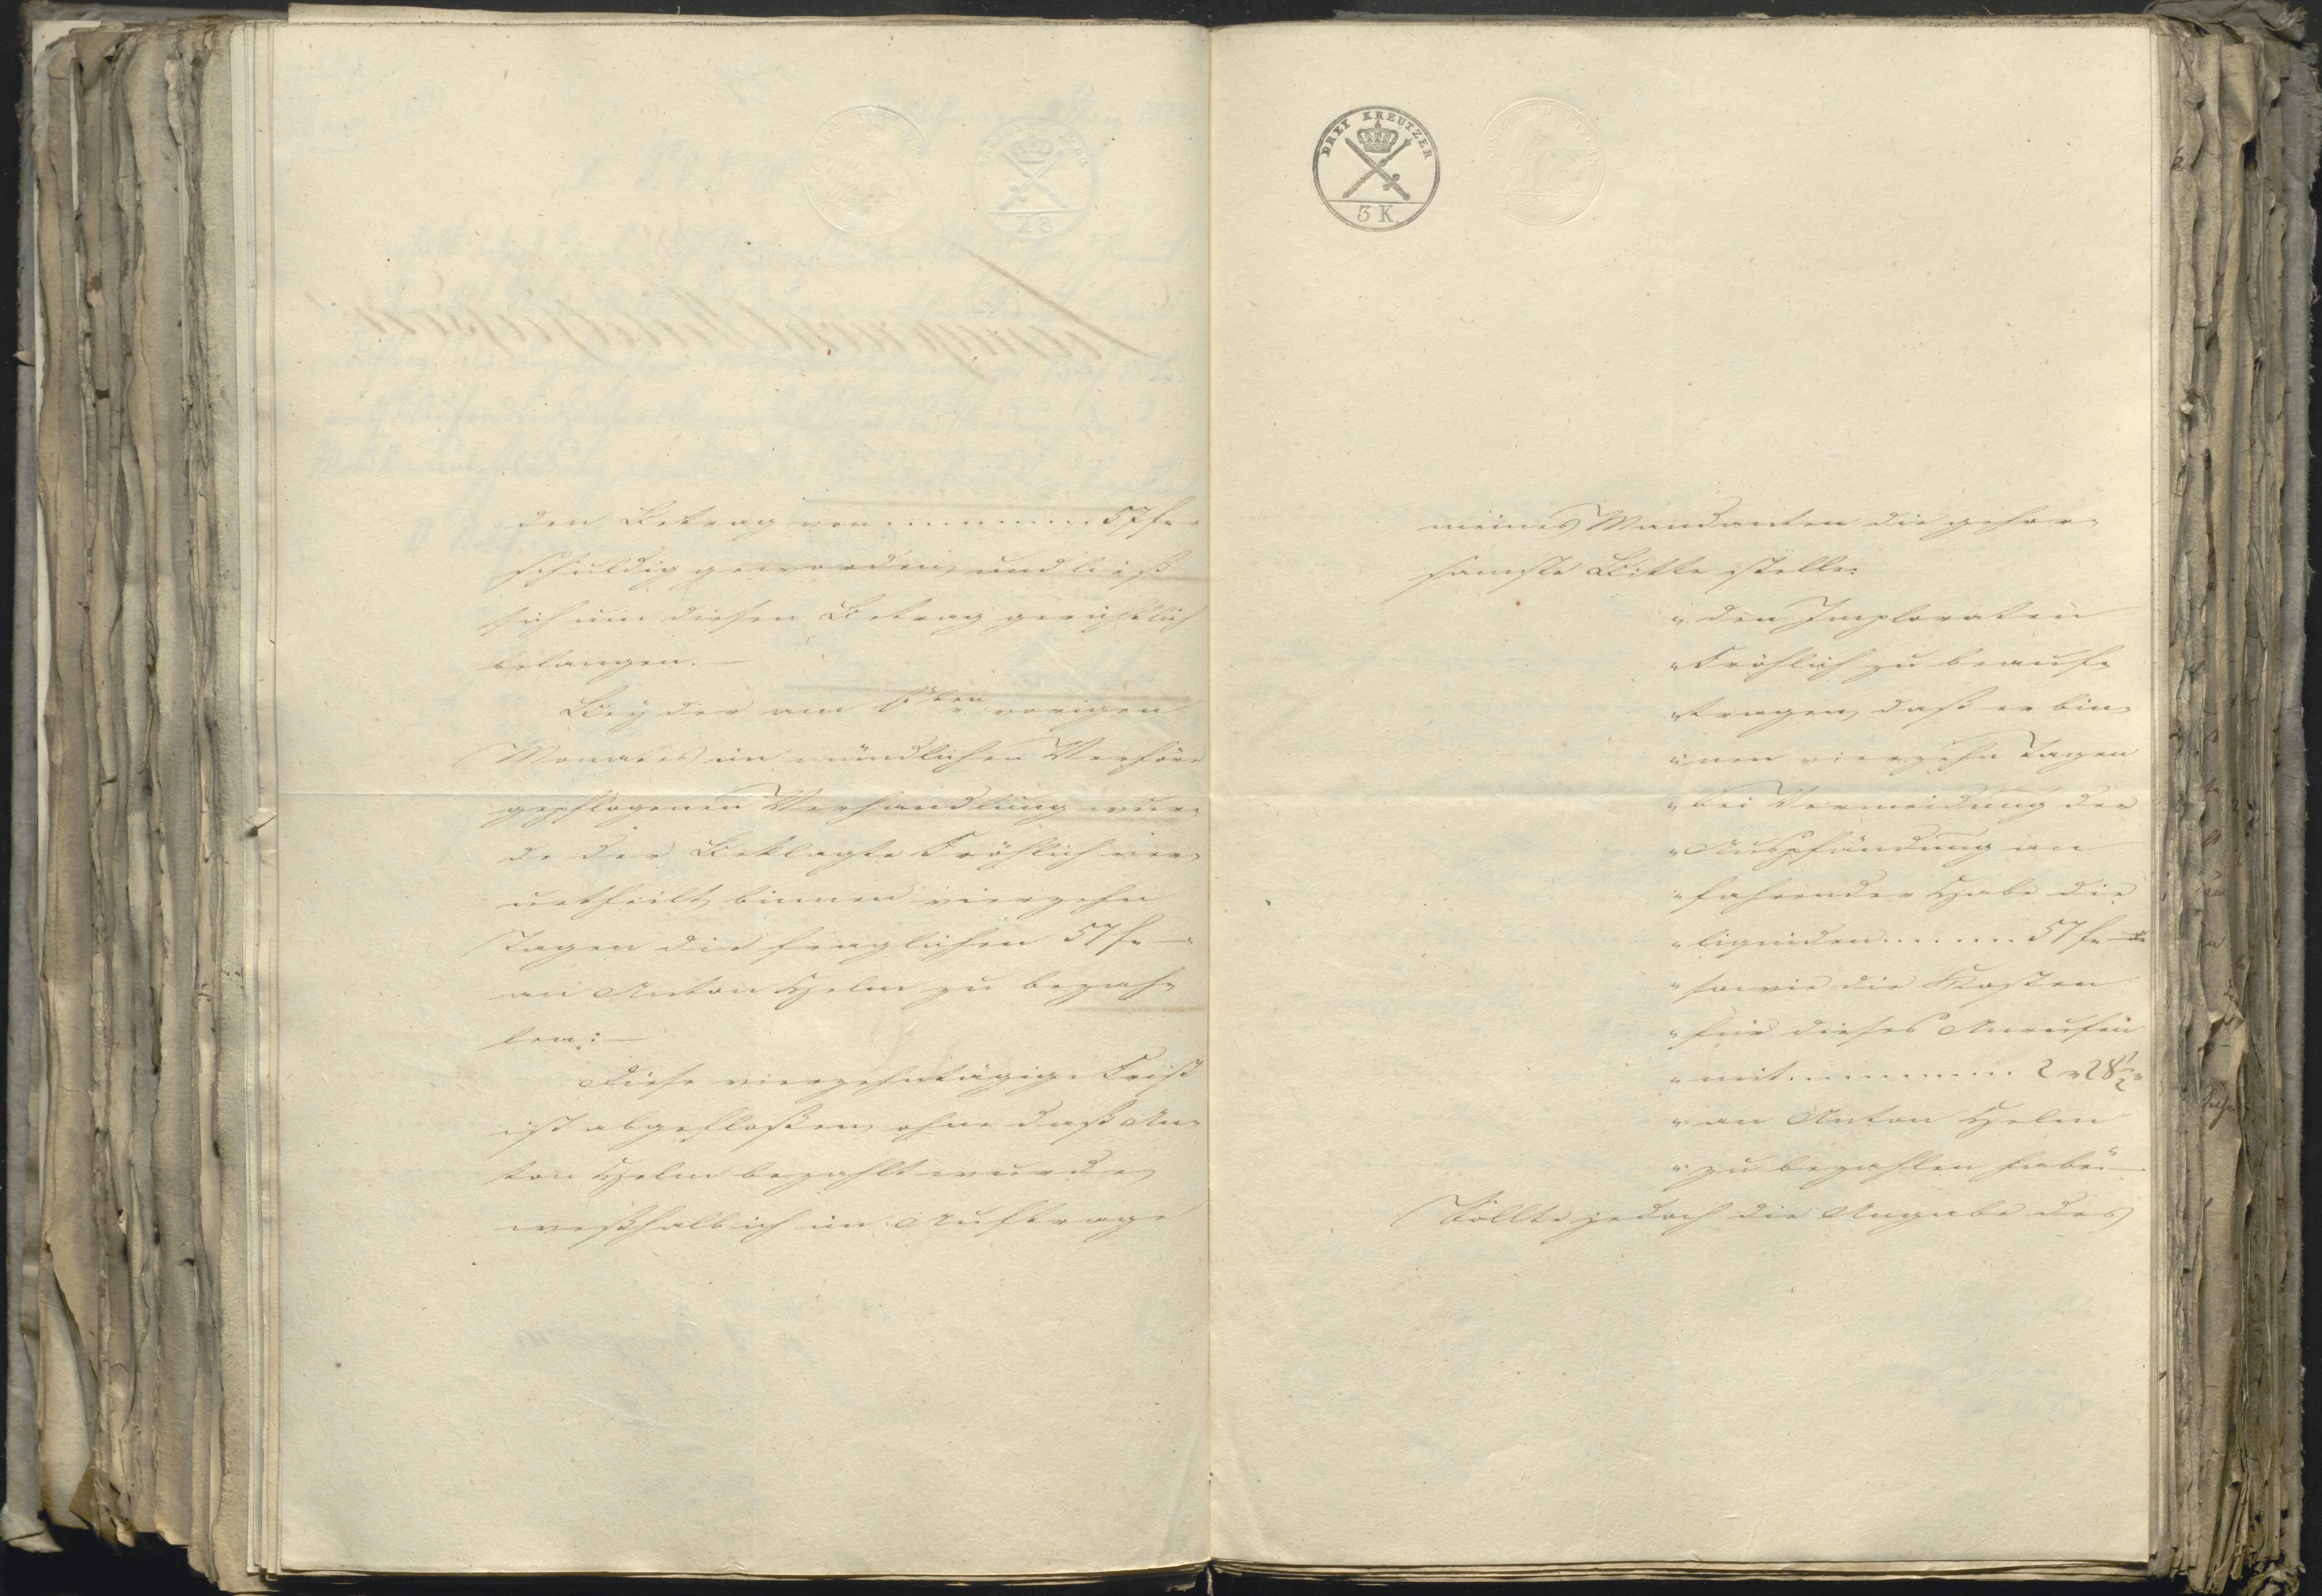 den Betrag von . . . . . . . . . . 57 f „
schuldig geworden, und ließ
sich um diesen Betrag gerichtlich
belangen. —
Bey der am ten vorigen
Monates im mündlichen Verhöre
gepflogenen Verhandlung wur„
de der Beklagte Fröhlich ver„
urtheilt, binnen vierzehn
Tagen die fraglichen 57 f „ — „
an Anton Helm zu bezah„
len: —
Diese vierzehntägige Frist
ist abgefloßen, ohne daß An„
ton Helm bezahlt wurde,
weßhalb ich im Auftrage
DREY KREUTZER
3 K.
meines Mandanten die gehor„
samste Bitte stelle:
„den Imploraten
„Fröhlich zu beauf„
„tragen, daß er bin„
„nen vierzehn Tagen
„bei Vermeidung der
„Auspfändung an
„fahrender Habe die
„liquiden . . . . . . . 57 f „ —
„sowie die Kosten
„für dieses Anrufen
„mit . . . . . . . . . . 2 „ 28 1/2 „
„an Anton Helm
„zu bezahlen habe.“ —
Sollte jedoch die Angabe des